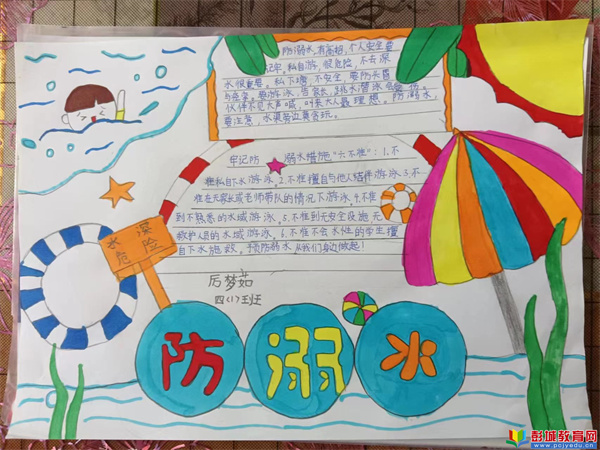 防溺水,有高招,个人安全要
记牢,私自游,很危险,不去深
水很重要,私下塘,不安全,要防头晕
伙伴不见大声喊,叫来大人最理想。防溺水,
要注意,水果旁边莫贪玩。
牢记防 溺水措施“六不准”:1.不
准私自下水游泳,2.不准擅自与他人结伴游泳3.不
准在无家长或老师带队的情况下游泳,4.不准
到不熟悉的水域游泳,5.不准到无安全设施无
救护人员的水域游泳,6.不准不会水性的学生擅
自下水施救,预防溺水从我们身边做起!
水深
危险
厉梦茹
四(1)班
防溺水
彭城教育网
www.pcjyedu.cn